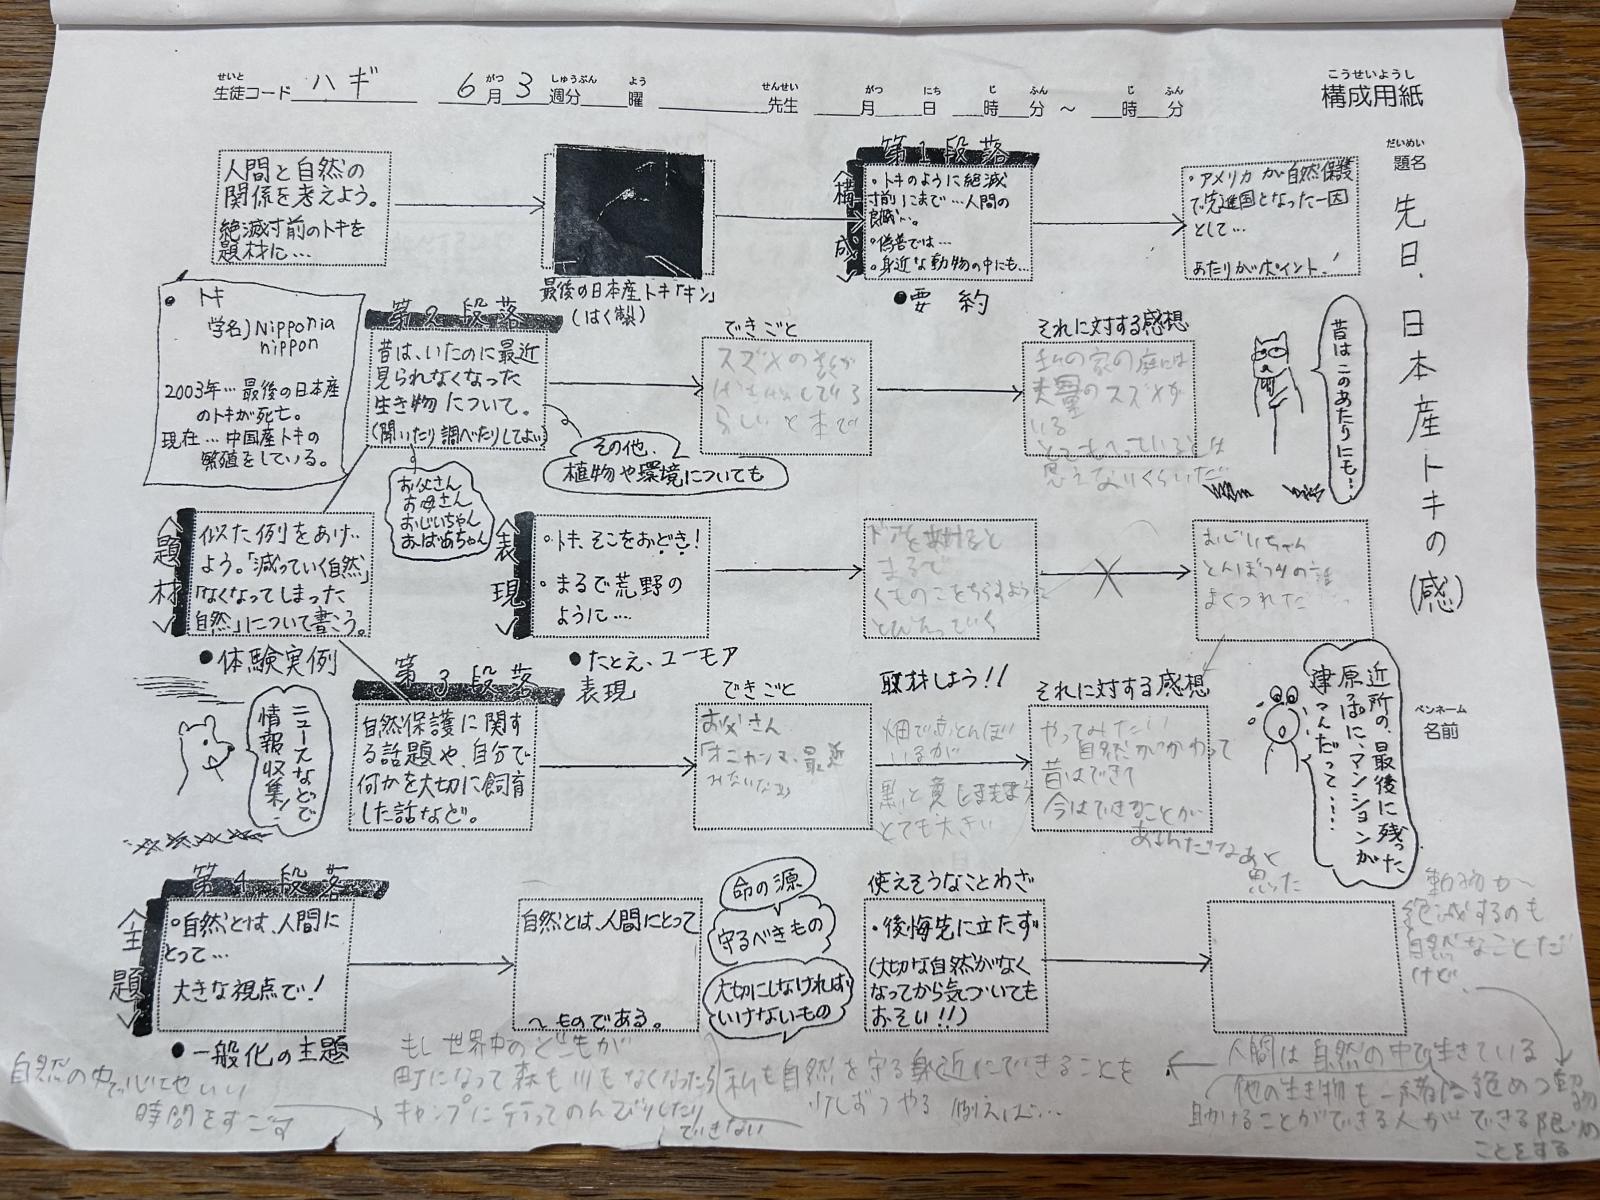 せいと がつ しゅうぶん よう せんせい がつ にち じ ふん じ ふん
生徒コード ハギ 6月3週分 曜 先生 月 日 時 分 ～ 時 分
こうせいようし
構成用紙
だいめい
題名
先日、日本産トキの(感)
ペンネーム
名前
人間と自然の
関係を考えよう。
絶滅寸前のトキを
題材に…
最後の日本産トキ「キン」
(はく製)
第1段落
〈構成〉
・トキのように絶滅
寸前にまで…人間の
・偽善では…
・身近な動物の中にも…
●要約
・アメリカが自然保護
で先進国となった一因
として…
あたりがポイント！
トキ
学名)Nipponia
nippon
2003年…最後の日本産
のトキが死亡。
現在…中国産トキの
繁殖をしている。
第2段落
昔は、いたのに最近
見られなくなった
生き物について。
(聞いたり調べたりしてよい)
その他、
植物や環境についても
お父さん
お母さん
おじいちゃん
おばあちゃん
できごと
スズメの数が
らしいと本で
それに対する感想
私の家の庭には
大量のスズメが
いる
とてもへっているとは
思えないくらいだ
昔はこのあたりにも…
〈題材〉
似た例をあげ
よう。「減っていく自然」
「なくなってしまった
自然」について書こう。
●体験実例
〈表現〉
・トキ、そこをおどき！
・まるで荒野の
ように…
●たとえ、ユーモア
表現
ドアを開けると
まるで
くものこをちらすように
とびたっていく
おじいちゃん
とんぼつりの話
ニュースなどで
情報収集！
第3段落
自然保護に関す
る話題や、自分で
何かを大切に飼育
した話など。
できごと
お父さん
「オニヤンマ、最近
みないなあ」
取材しよう！！
畑で赤とんぼは
いるが
とても大きい
それに対する感想
やってみたい
自然がかわって
昔はできて
今はできることが
あるんだなあと
思った
近所の、最後に残った
原っぱに、マンションが
建つんだって……
第4段落
〈主題〉
・自然とは、人間に
とって…
大きな視点で！
●一般化の主題
自然とは、人間にとって
～ものである。
命の源
守るべきもの
大切にしなければ
いけないもの
使えそうなことわざ
・後悔先に立たず
(大切な自然がなく
なってから気づいても
おそい！！)
動物が
絶滅するのも
自然なことだ
けど、
自然の中で心地いい
時間をすごす
もし世界中のどこもが
町になって森も川もなくなったら
キャンプに行ってのんびりしたり
できない
私も自然を守る身近にできることを
少しずつやる 例えば…
人間は自然の中で生きている
他の生き物も一緒に
助けることができる人ができる限りの
ことをする